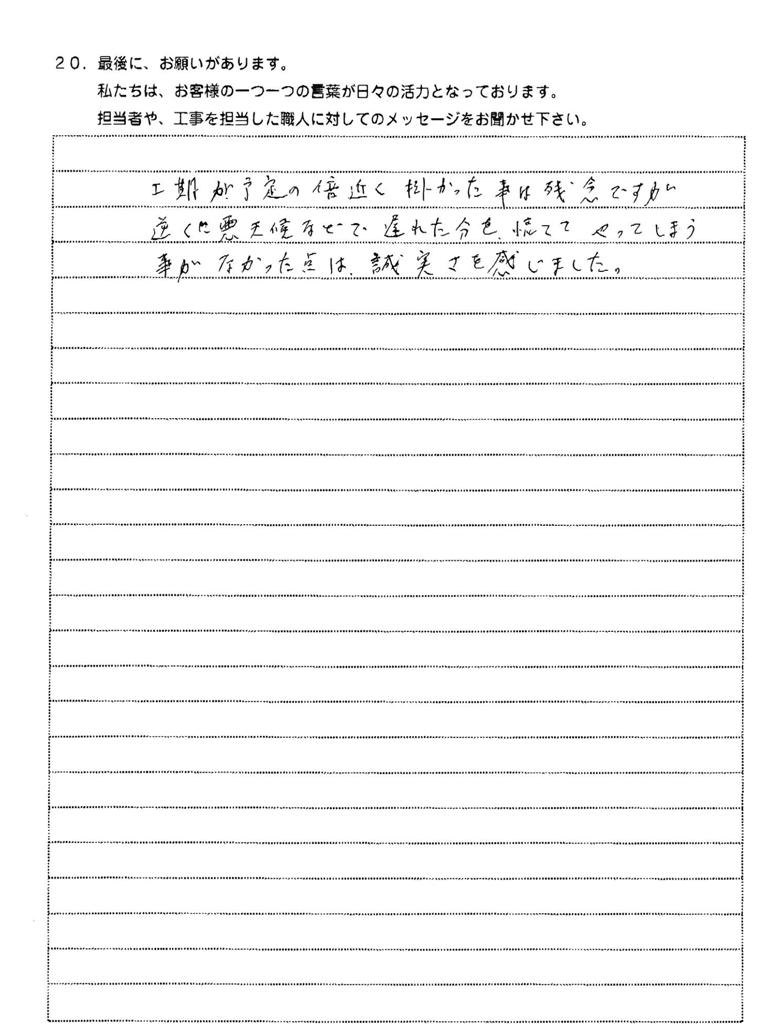 20. 最後に、お願いがあります。
私たちは、お客様の一つ一つの言葉が日々の活力となっております。
担当者や、工事を担当した職人に対してのメッセージをお聞かせ下さい。
工期が予定の倍近く掛かった事は残念ですが
逆に悪天候などで遅れた分を、慌ててやってしまう
事がなかった点は、誠実さを感じました。